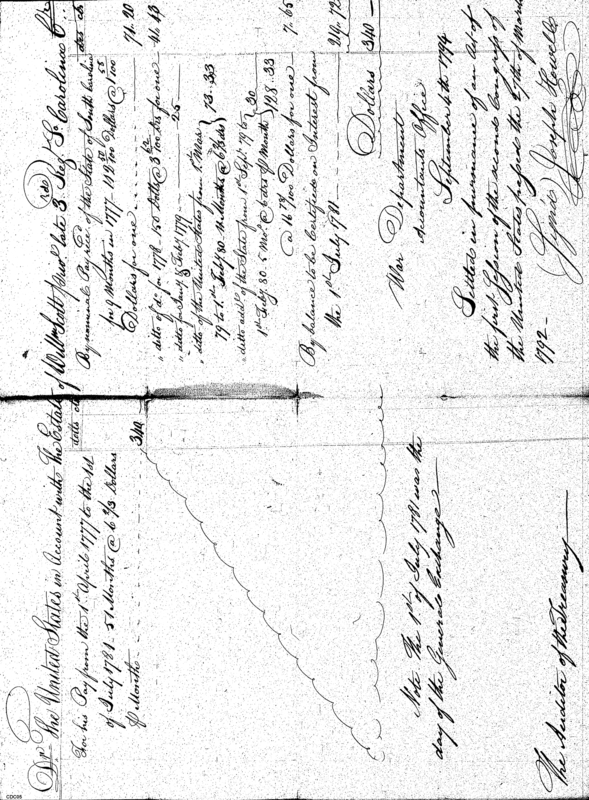 Dr. The United States in Account with The Estate of Willm Scott Private late 3 Reg So. Carolina
dolls cts
For his Pay from the 1st April 1777 to the 1st
of July 1781 - 51 Months @ 6 2/3 Dollars
P Month
340
Note The 1st of July 1781 was the
day of the General Exchange
The Auditor of the Treasury
dols cts
By nominal Pay recd. of the State of South Carolina
for 9 Months in 1777
Dollars for one
74. 20
" ditto of do. for 1778 - 150 Dolls @ 3 62/100 ditto for one
" ditto for Jany & Feby 1779
25
" ditto of the United States from 1st Mar
79 to 1st Feby 80
73. 33
" ditto addl. of the State from 1st Sept. 79 to
1st Feby 80. 5 Mos. @ 6 ctes P Month
30
128. 33
@ 16 78/100 Dollars for one
7. 65
By balance to be Certificate on Interest from
the 1st July 1781
Dollars
340 —
War Department
Accountants Office
September 4th 1794
Settled in pursuance of an Act of
the first Session of the second Congress of
the United States passed the 27th of March
1792 -
Joseph Howell
CDC55